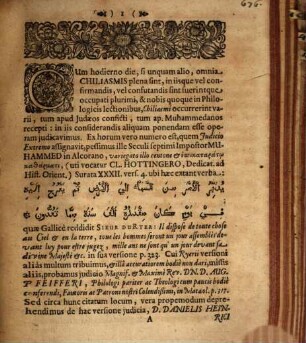 ( 1 )
Cum hodierno die, si unquam alio, omnia
CHILIASMIS plena sint, in iisque vel con-
firmandis, vel confutandis sint fuerintque
occupati plurimi, & nobis quoque in Philo-
logicis lectionibus, Chiliasmi occurrerint va-
rii, tum apud Judæos conficti, tum ap. Muhammedanos
recepti: in iis considerandis aliquam ponendam esse ope-
ram judicavimus. Ex horum vero numero est, quem Judicio
Extremo assignavit, pessimus ille Seculi septimi Impostor MU-
HAMMED in Alcorano,
(uti vocatur CL. HOTTINGERO, Dedicat. ad
Hist. Orient.) Surata XXXII. vers. 4. ubi hæc extant verba:
يدبر الامر من السماء الى الارض ثم يعرج اليه
في يوم كان مقداره الف سنة مما تعدون
quæ Gallicè reddidit SIEUR DU RYER: Il dispose de toute chose
au Ciel & en la terre, tous les hommes seront un jour assemblez de-
vant luy pour estre jugez, mille ans ne sont qu' un jour devant sa di-
vine Majesté &c. in sua versione p. 323. Cui Ryerii versioni
alii multum tribuimus, & illâ accuratiorem hodiè non dari, missis
aliis, probamus judicio Magnif. & Maximè Rev. DN. D. AUG.
PFEIFFERI, Philologi pariter ac Theologi cum paucis hodiè
conferendi, Fautoris ac Patroni nostri Colendissimi, in Mataeol. p. 318.
Sed circa hunc citatum locum, vera propemodum depre-
hendimus de hac versione judicia, D. DANIELIS HEIN-
A
RICI